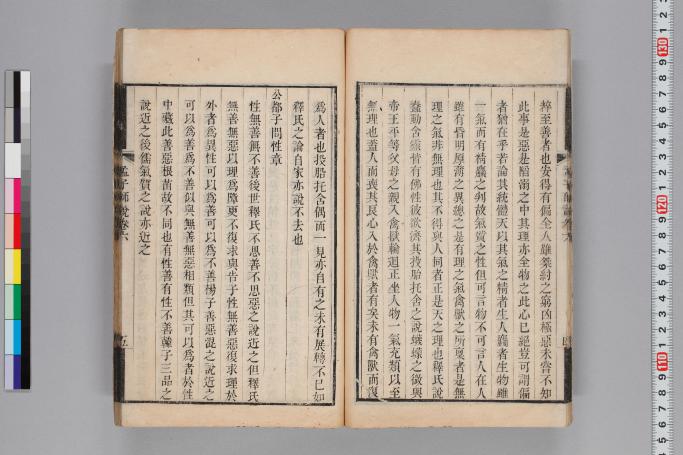 粹至善者也安得有偏全人雖桀紂之窮凶極惡未嘗不知
此事是惡是陷溺之中其理亦全物之此心已絕豈可謂偏
者猶在乎若論其統體天以其氣之精者生人麤者生物雖
一氣而有精麤之判故氣質之性但可言物不可言人在人
雖有昏明厚薄之異總之是有理之氣禽獸之所稟者是無
理之氣非無理也其不得與人同者正是天之理也釋氏說
蠢動含靈皆有佛性彼欲濟其投胎托舍之說螻蟻之微與
帝王平等父母之親入禽獸輪迴正坐人物一氣充類以至
無理也蓋人而喪其良心入於禽獸者有矣未有禽獸而復
爲人者也投胎托舍偶而一見亦自有之未有展轉不已如
釋氏之論自家亦說不去也
公都子問性章
性無善無不善後世釋氏不思善不思惡之說近之但釋氏
無善無惡以理爲障更不復求與告子性無善惡復求理於
外者爲異性可以爲善可以爲不善楊子善惡混之說近之
可以爲善爲不善似與無善無惡相類但其可以爲者於性
中藏此善惡根苗故不同也有性善有性不善韓子三品之
說近之後儒氣質之說亦近之
孟子師說卷六
五